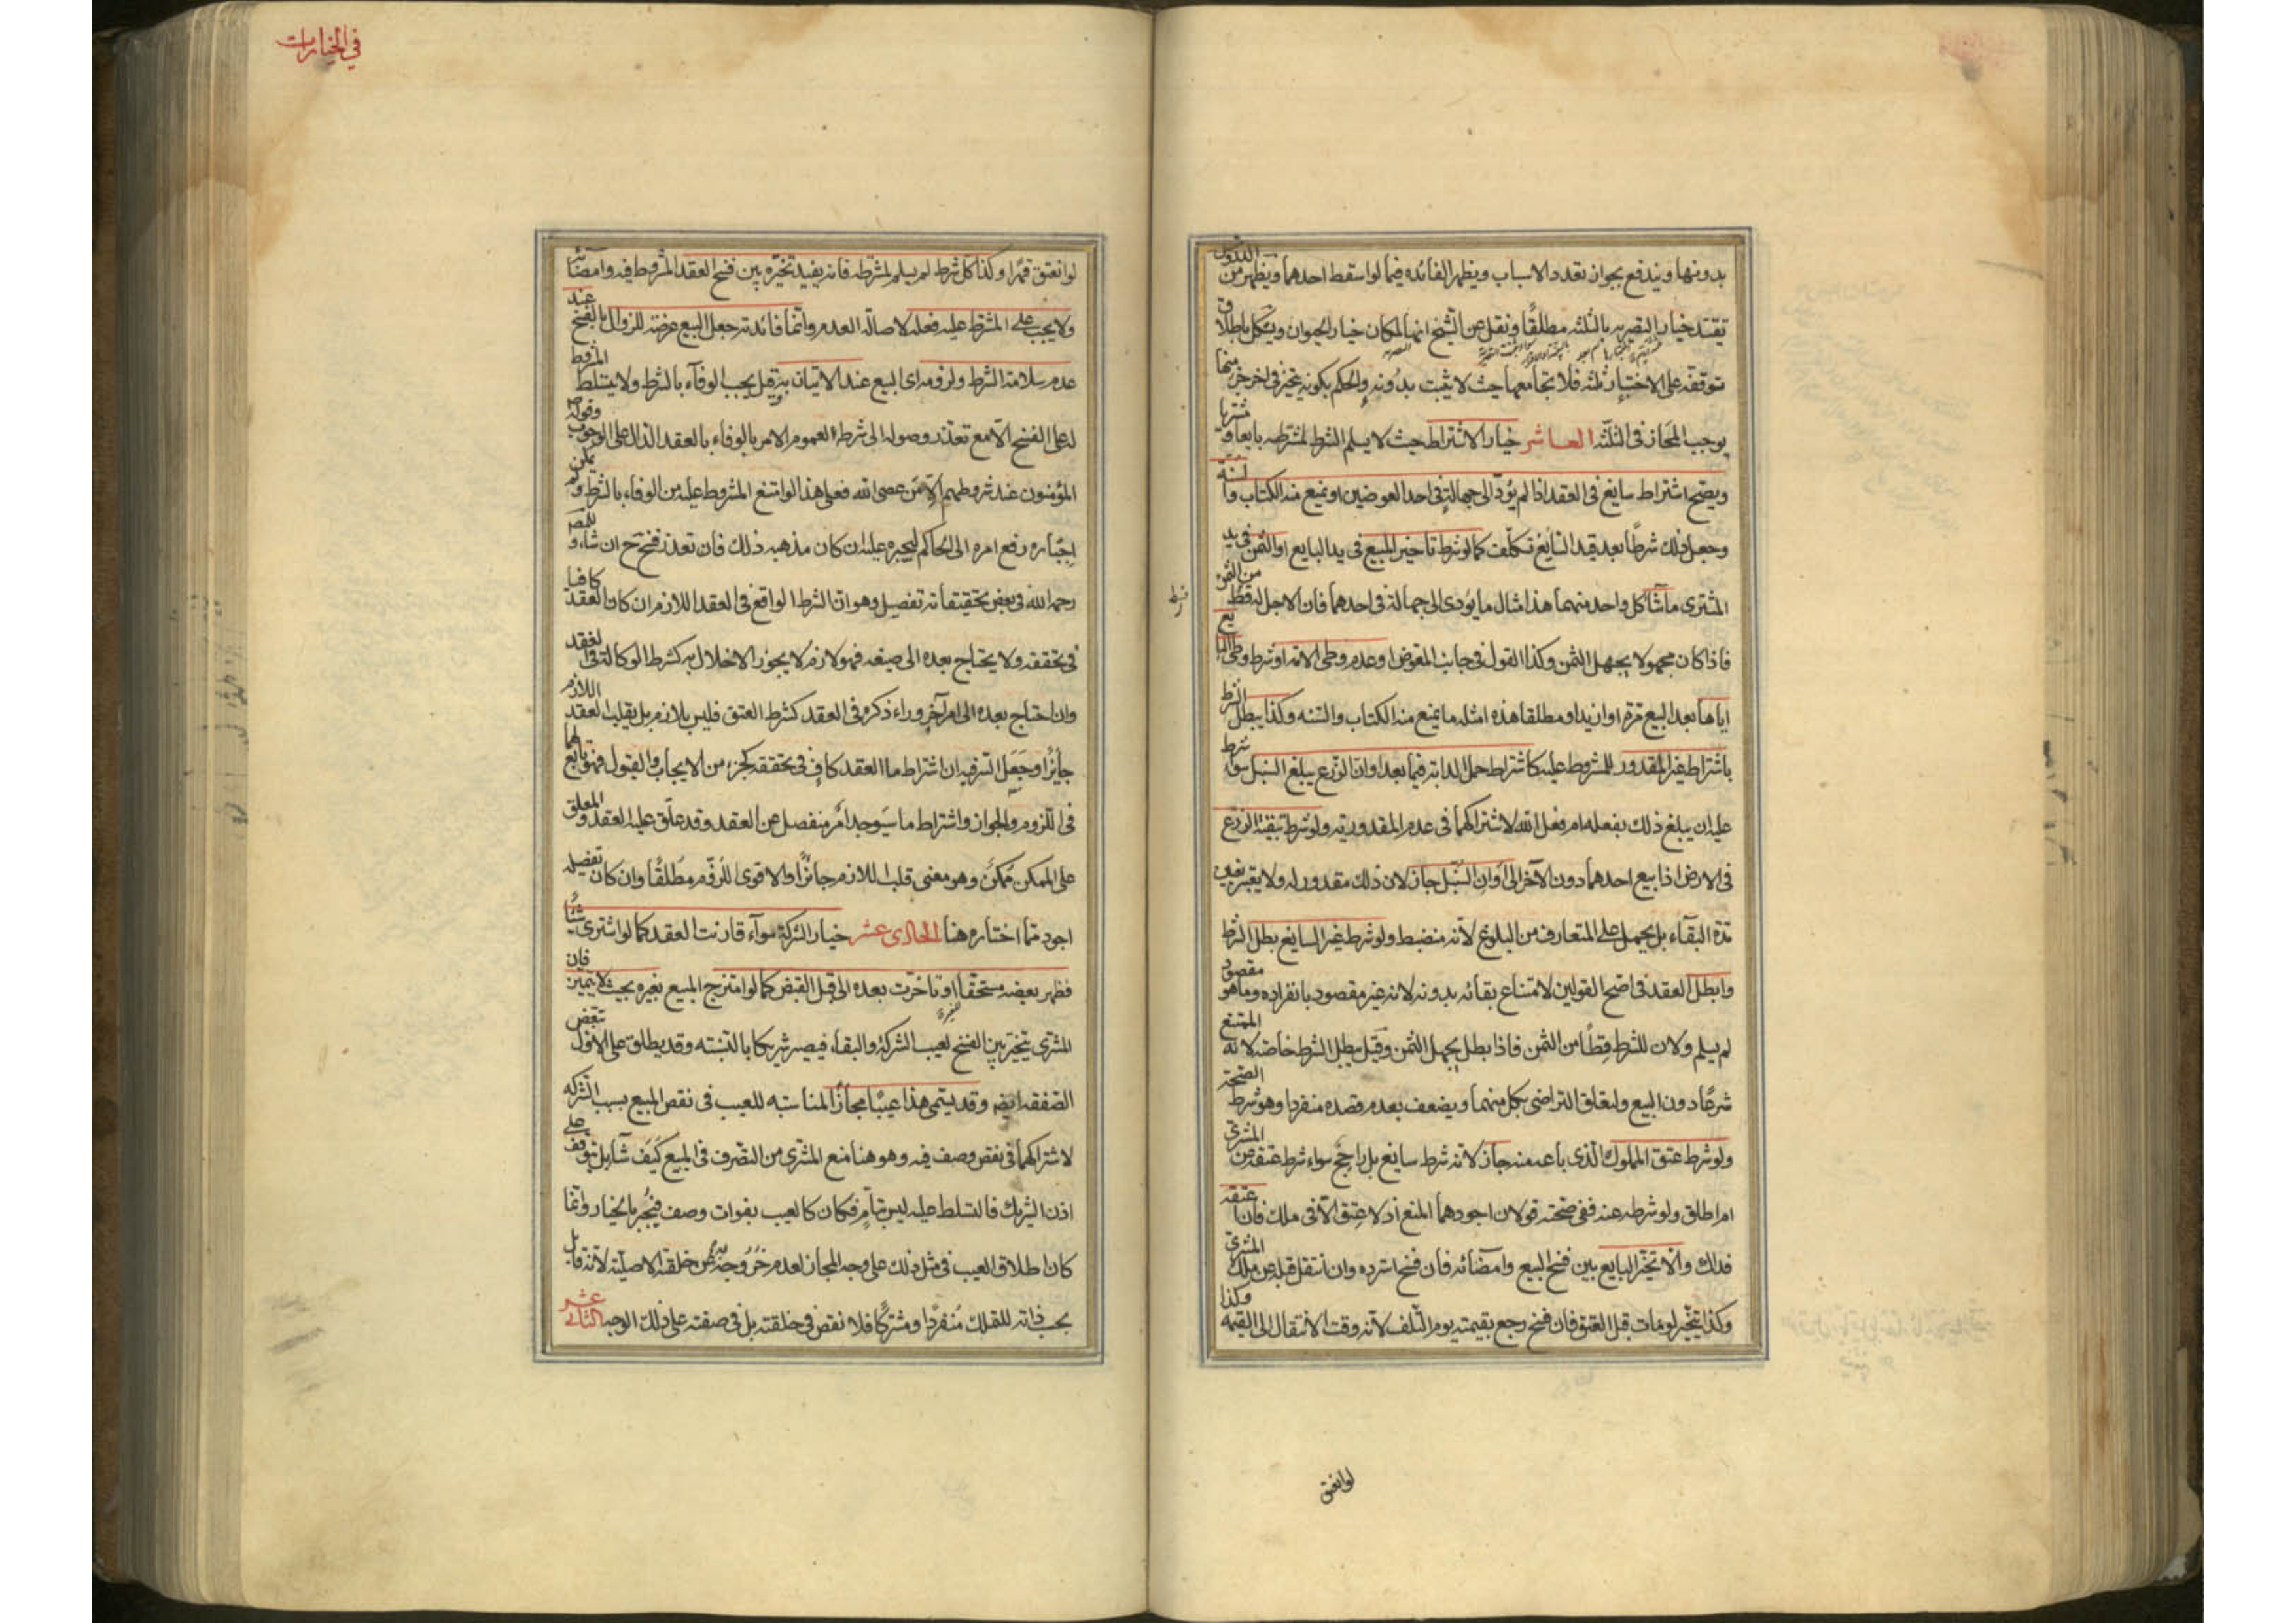 بدونها ويندفع بجواز تعدد الاسباب ويظهر الفائده فيما لو اسقط احدهما ويظهر من الدروس
تقيّد خيار التصريه بالثلثه مطلقًا ونقل عن الشيخ انها لمكان خيار الحيوان ويشكل باطلاق
توقفه على الاختبار ثلثه فلا يتجامعها حيث لا يثبت بدونه والحكم بكونه يتخير في اخر جزء منها
يوجب المجاز في الثلثه العاشر خيار الاشتراط حيث لا يسلم الشرط لمشترطه بايعا او مشتريا
ويصح اشتراط سايغ في العقد اذا لم يؤد الى جهالة في احد العوضين او يمنع منه الكتاب والسنة
وجعل ذلك شرطًا بعد قيد السايغ تكلّف كما لو شرط تاخير المبيع في يد البايع او الثمن في يد
المشترى ما شآ كل واحد منهما هذا مثال ما يؤدى الى جهالة في احدهما فان الاجل له قسط من الثمن
فاذا كان مجهولا يجهل الثمن وكذا القول في جانب المعوض او عدم وطى الامة او شرط وطى البايع
اياها بعد البيع مرة او ازيد او مطلقا هذه امثله ما يمنع منه الكتاب والسنه وكذا يبطل الشرط
باشتراط غير المقدور للمشروط عليه كاشتراط حمل الدابة فيما بعد او ان الزرع يبلغ السنبل سوآ شرط
عليه ان يبلغ ذلك بفعله ام بفعل الله لاشتراكهما في عدم المقدورية ولو شرط تبقية الزرع
في الارض اذا بيع احدهما دون الآخر الى أوان السّنبل جاز لان ذلك مقدور له ولا يعتبر تعيين
مدّة البقآء بل يحمل على المتعارف من البلوغ لانّه منضبط ولو شرط غير السايغ بطل الشرط
وابطل العقد في اصح القولين لامتناع بقائه بدونه لانه غير مقصود بانفراده وما هو مقصود
لم يسلم ولان للشرط قسطًا من الثمن فاذا بطل يجهل الثمن وقيل يبطل الشرط خاصة لانه الممتنع
شرعًا دون البيع ولتعلق التراضى بكل منهما ويضعف بعدم قصده منفردا وهو شرط الصحّة
ولو شرط عتق المملوك الذى باعه منه جاز لانّه شرط سايغ بل راجح سواء شرط عتقه عن المشترى
ام اطلق ولو شرطه عنه ففى صحته قولان اجودهما المنع اذ لا عتق الّا في ملك فان اعتقه
فذلك والّا تخيّر البايع بين فسخ البيع وامضائه فان فسخ استرده وان انتقل قبله عن ملك المشترى
وكذا يتخيّر لو مات قبل العتق فان فسخ رجع بقيمته يوم التّلف لانّه وقت الانتقال الى القيمة وكذا
شرط
لو انعتق
في الخيارات
لو انعتق قهرًا وكذا كل شرط لم يسلم لمشترطه فانه يفيد تخيّره بين فسخ العقد المشروط فيه وامضائه
ولا يجب على المشترط عليه فعله لاصالة العدم وانّما فائدته جعل البيع عرضة للزوال بالفسخ عند
عدم سلامة الشرط ولزومه اى البيع عند الاتيان به وقيل يجب الوفآء بالشرط ولا يتسلط المشروط
له على الفسخ الّا مع تعذر وصوله الى شرطه لعموم الامر بالوفاء بالعقد الدال على الوجوب وقوله ص
المؤمنون عند شروطهم الّا من عصى الله فعلى هذا لو امتنع المشروط عليه من الوفاء بالشرط ولم يمكن
اجباره رفع امره الى الحاكم ليجبره عليه ان كان مذهبه ذلك فان تعذر فسخ ح ان شاء وللمص
رحمه الله في بعض تحقيقاته تفصيل وهو ان الشرط الواقع في العقد اللازم ان كان العقد كافيا
في تحققه ولا يحتاج بعده الى صيغة فهو لازم لا يجوز الاخلال به كشرط الوكالة في العقد
وان احتاج بعده الى امر آخر وراء ذكره في العقد كشرط العتق فليس بلازم بل يقلب العقد اللازم
جائزًا وجَعَل السر فيه ان اشتراط ما العقد كاف في تحققه كجزء من الايجاب والقبول فهو تابع لهما
في اللزوم والجواز واشتراط ما سيوجد امر منفصل عن العقد وقد علق عليه العقد والمعلق
على الممكن ممكن وهو معنى قلب اللازم جائزًا والاقوى اللزوم مطلقًا وان كان تفصيله
اجود مما اختاره هنا الحادى عشر خيار الشركة سوآء قارنت العقد كما لو اشترى شيئًا
فظهر بعضه مستحقا او تاخرت بعده الى قبل القبض كما لو امتزج المبيع بغيره بحيث لا يتميز فان
المشترى يتخير بين الفسخ لعيب الشركة والبقاء فيصير شريكا بالنسبه وقد يطلق على الاول تبعّض
الصفقه ايضا وقد يسمى هذا عيبًا مجازًا لمناسبته للعيب في نقص المبيع بسبب الشركه
لاشتراكهما في نقص وصف فيه وهو هنا منع المشترى من التصرف في المبيع كيف شآء بل يتوقف على
اذن الشريك فالتسلط عليه ليس بتام فكان كالعيب بفوات وصف فيجبر بالخيار وانما
كان اطلاق العيب في مثل ذلك على وجه المجاز لعدم خروجه به عن خلقته الاصلية لانه قابل
بحسب ذاته للتملك منفردًا ومشتركًا فلا نقص في خلقته بل في صفته على ذلك الوجه الثانى عشر